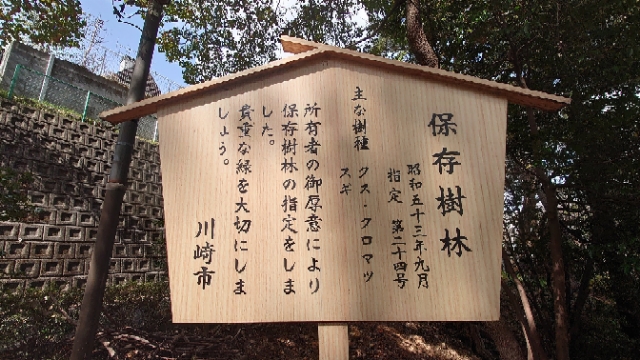 保存樹林
昭和五十三年九月
指定　第二十四号
主な樹種　クス・クロマツ
スギ
所有者の御厚意により
保存樹林の指定をしま
した。
貴重な緑を大切にしま
しょう。
川崎市